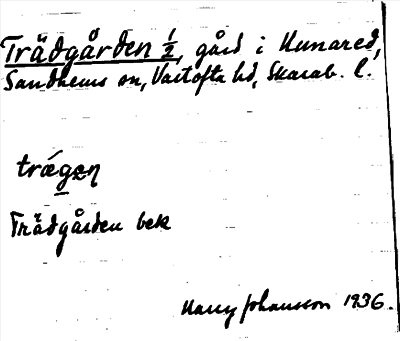 Trädgården ½, gård i Kunared,
Sandhems sn, Vartofta hd, Skarab. l.
trǽgen
Trädgården bek
Harry Johansson 1936.